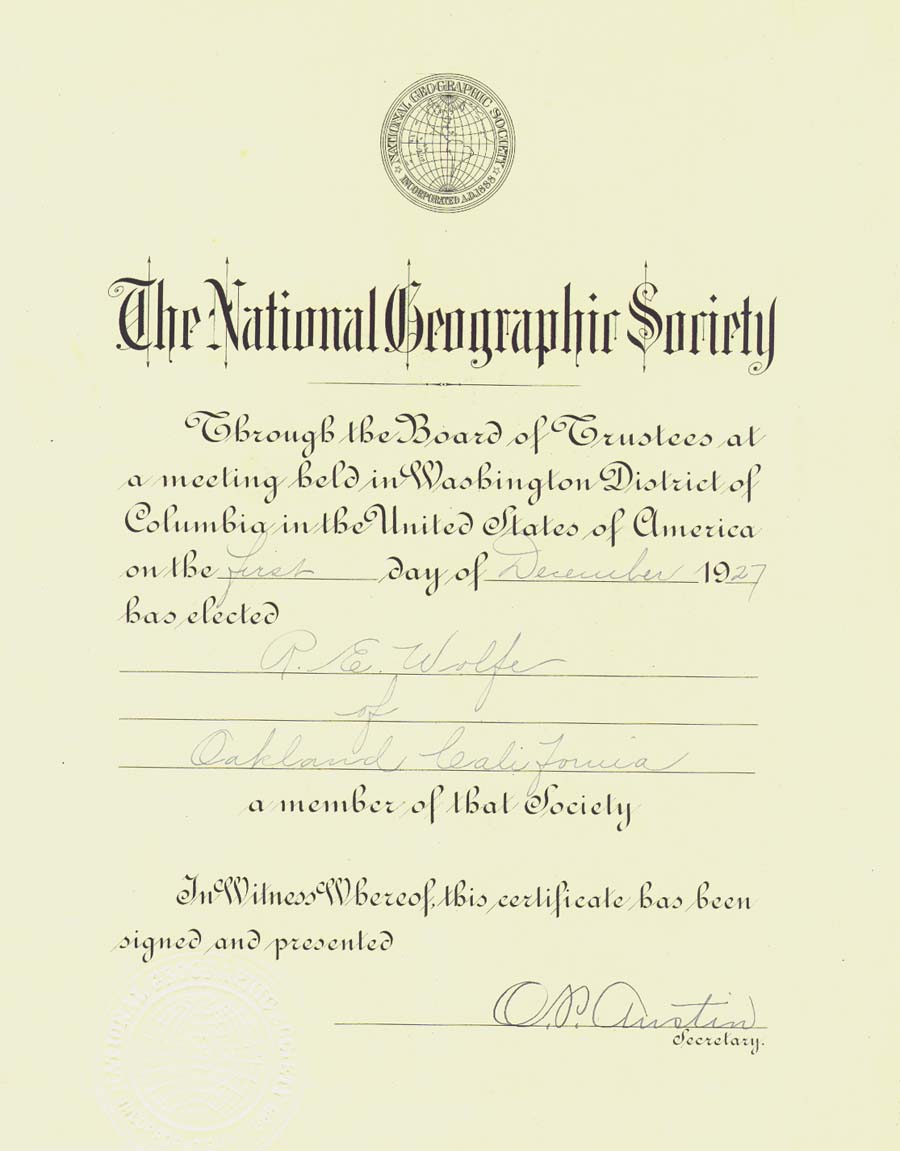 NATIONAL GEOGRAPHIC SOCIETY
INCORPORATED A.D. 1888
The National Geographic Society
Through the Board of Trustees at
a meeting held in Washington District of
Columbia in the United States of America
on the first day of December 1927
has elected
R. E. Wolfe
of
Oakland California
a member of that Society
In Witness Whereof, this certificate has been
signed and presented
O.P. Austin
Secretary.